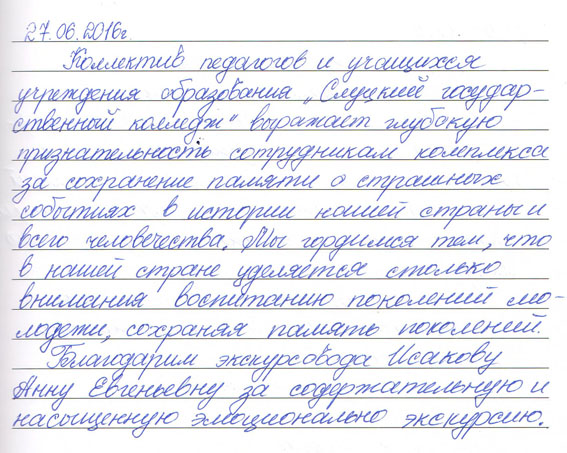 27.06.2016г.
Коллектив педагогов и учащихся
учреждения образования „Слуцкий государ-
ственный колледж" выражает глубокую
признательность сотрудникам комплекса
за сохранение памяти о страшных
событиях в истории нашей страны и
всего человечества. Мы гордимся тем, что
в нашей стране уделяется столько
внимания воспитанию поколений мо-
лодежи, сохраняя память поколений.
Благодарим экскурсовода Исакову
Анну Евгеньевну за содержательную и
насыщенную эмоционально экскурсию.